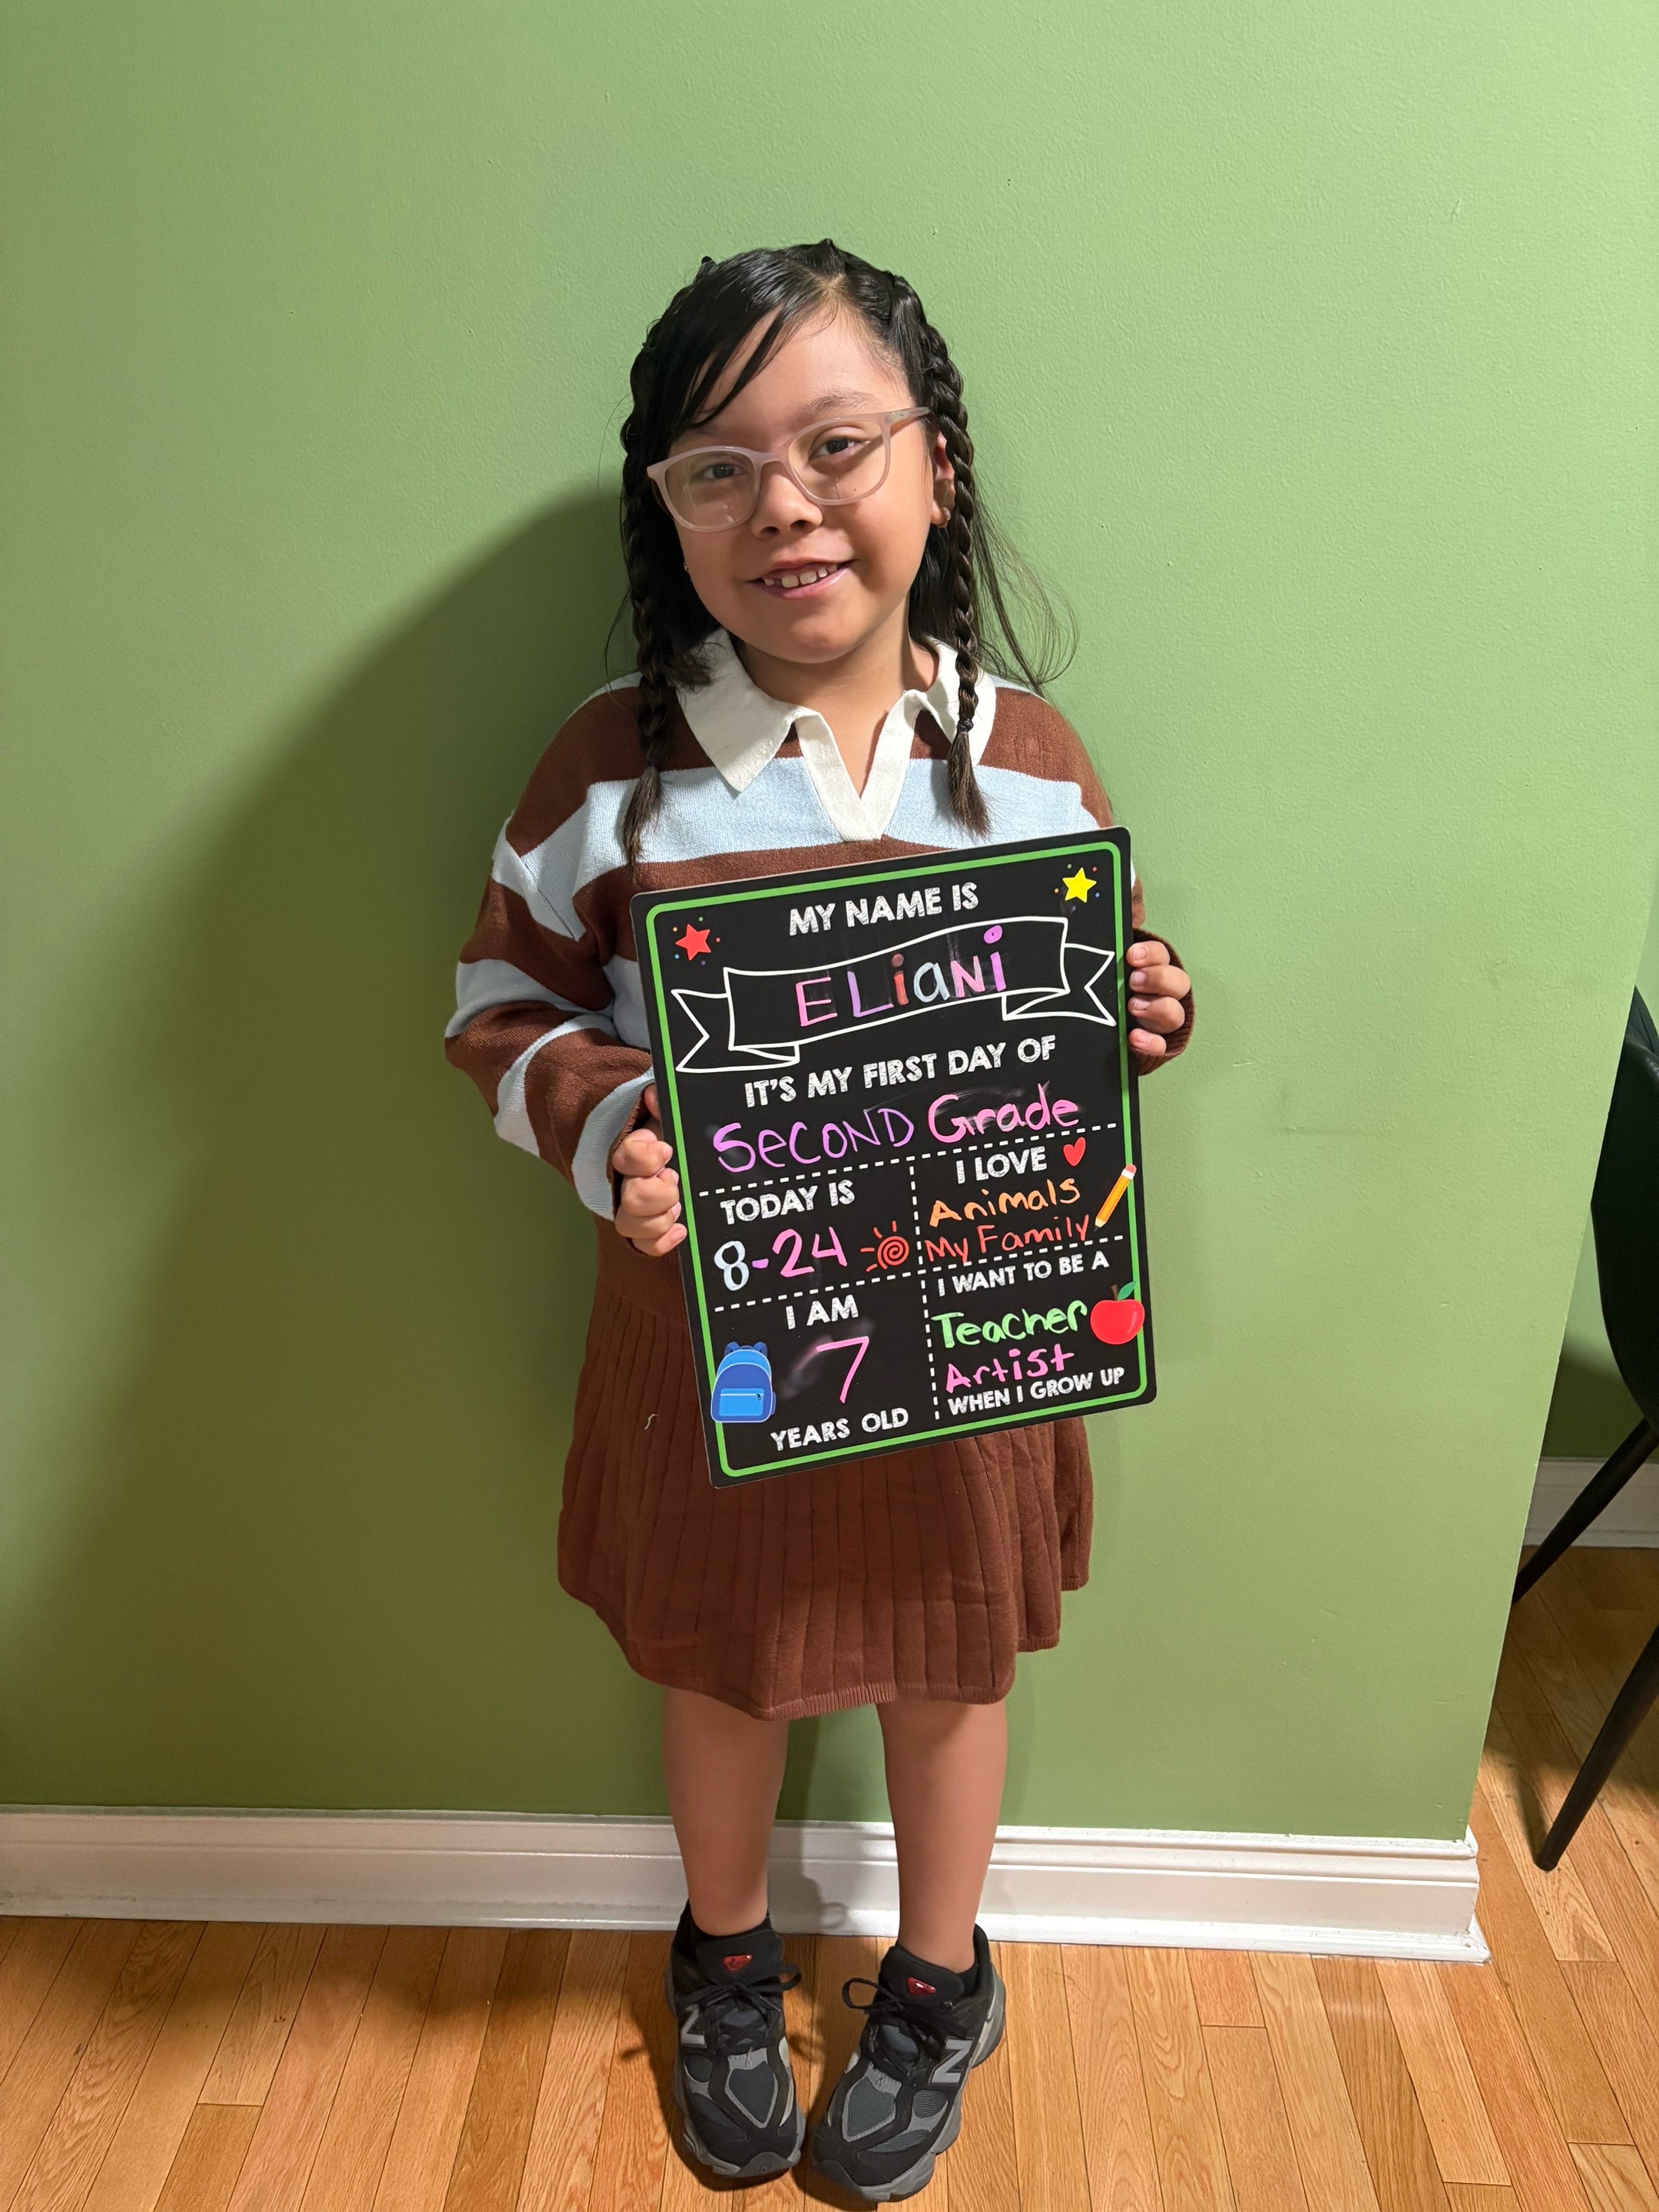 MY NAME IS
ELiaNi
IT'S MY FIRST DAY OF
SeCOND Grade
TODAY IS
8-24
I LOVE
Animals
My Family
I AM
7
YEARS OLD
I WANT TO BE A
Teacher
Artist
WHEN I GROW UP
N
N